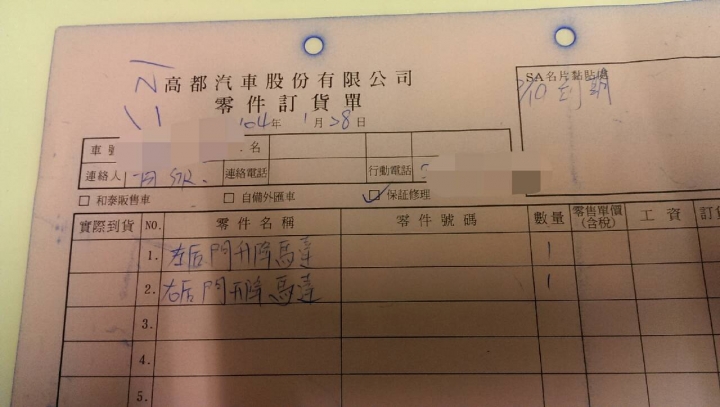 高都汽車股份有限公司
零件訂貨單
104年1月28日
SA名片黏貼處
2/10到期
車號 名
連絡人 連絡電話 行動電話
□ 和泰販售車 □ 自備外匯車 □ 保証修理
實際到貨 NO. 零件名稱 零件號碼 數量 零售單價(含稅) 工資 訂
1. 左后門升降馬達 1
2. 右后門升降馬達 1
3.
4.
5.